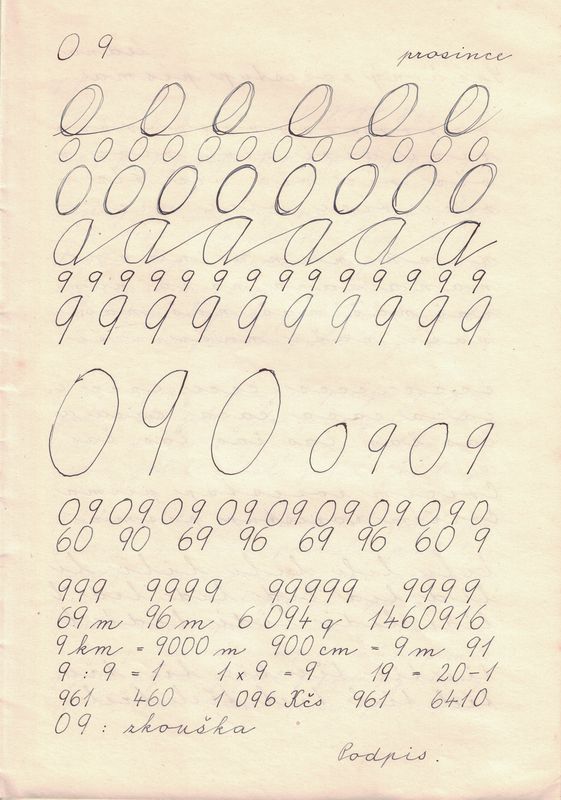 0 9 prosince
0 0 0 0 0 0
0 0 0 0 0 0 0 0 0 0 0 0 0
0 0 0 0 0 0 0 0
a a a a a a
9 9 9 9 9 9 9 9 9 9 9 9 9 9
9 9 9 9 9 9 9 9 9 9
0 9 0 0 9 0 9
09 09 09 09 09 09 09 09 0
60 90 69 96 69 96 60 9
999 9999 99999 9999
69 m 96 m 6 094 g 1460916
9 km = 9000 m 900 cm = 9 m 91
9 : 9 = 1 1 x 9 = 9 19 = 20-1
961 460 1 096 Kčs 961 6410
09 : zkouška
Podpis: